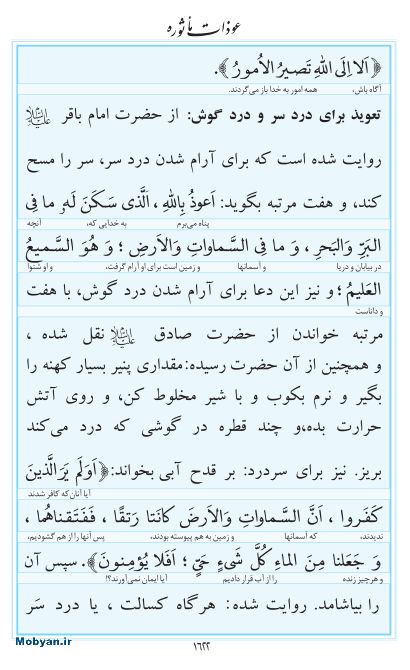 عوذات مأثوره
﴿ اَلا اِلَى اللهِ تَصیرُ الاُمورُ﴾.
آگاه باش، همه امور به خدا باز می‌گردند.
تعویذ برای درد سر و درد گوش: از حضرت امام باقر علیه‌السلام
روایت شده است که برای آرام شدن درد سر، سر را مسح
کند، و هفت مرتبه بگوید: اَعوذُ بِاللهِ ، اَلَّذی سَکَنَ لَهُ ما فِی
پناه می‌برم به خدایی که، آنچه
البَرِّ وَالبَحرِ ، وَ ما فِی السَّماواتِ وَالاَرضِ ؛ وَ هُوَ السَّمیعُ
در بیابان و دریا و آسمانها و زمین است برای او آرام گرفت، و او شنوا
العَلیمُ ؛ و نیز این دعا برای آرام شدن درد گوش، با هفت
و داناست
مرتبه خواندن از حضرت صادق علیه‌السلام نقل شده ،
و همچنین از آن حضرت رسیده: مقداری پنیر بسیار کهنه را
بگیر و نرم بکوب و با شیر مخلوط کن، و روی آتش
حرارت بده،و چند قطره در گوشی که درد می‌کند
بریز. نیز برای سردرد: بر قدح آبی بخواند:﴿اَوَلَم یَرَ الَّذینَ
آیا آنان که کافر شدند
کَفَروا ، اَنَّ السَّماواتِ وَالاَرضَ کانَتا رَتقًا ، فَفَتَقناهُما ،
ندیدند، که آسمانها و زمین به هم پیوسته بودند، پس آنها را از هم گشودیم،
وَ جَعَلنا مِنَ الماءِ کُلَّ شَیءٍ حَیٍّ ؛ اَفَلا یُؤمِنونَ﴾. سپس آن
و هر چیز زنده را از آب قرار دادیم آیا ایمان نمی‌آورند؟!
را بیاشامد. روایت شده: هرگاه کسالت ، یا درد سَر
۱۶۲۲
Mobyan.ir